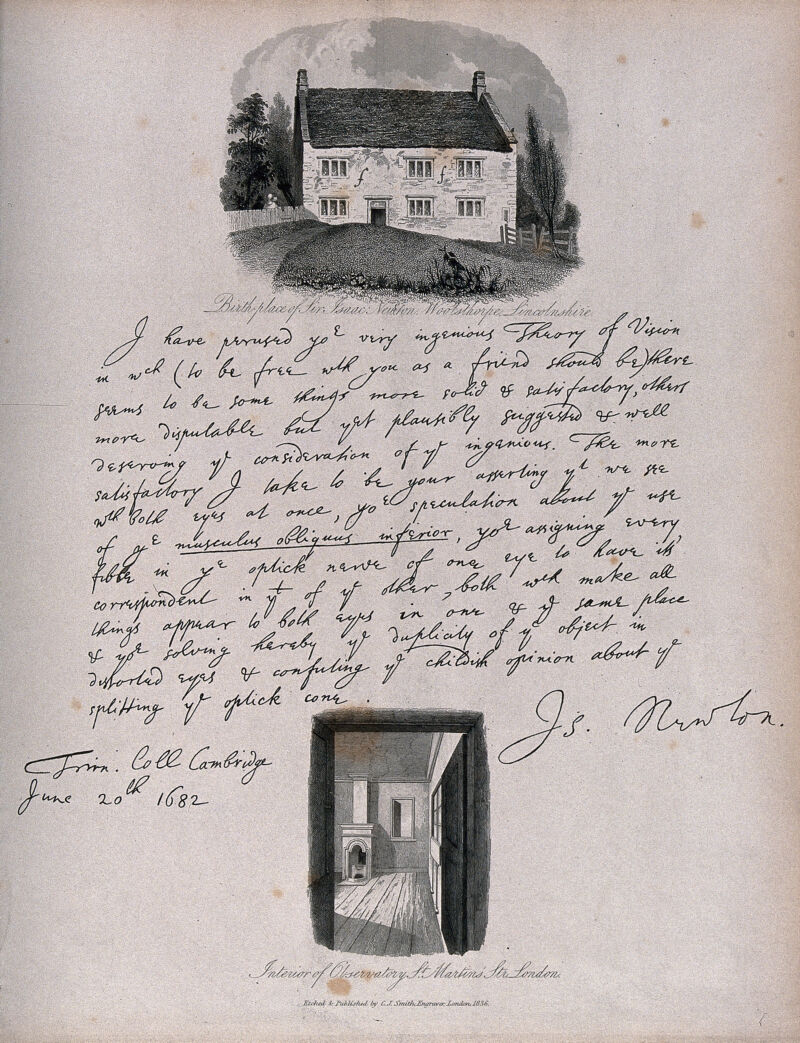 Birthplace of Sir Isaac Newton. Woolsthorpe, Lincolnshire.
I have perused yoᵉ very ingenious Theory of Vision
in wch (to be free wth you as a friend should be) there
seems to be some things more solid & satisfactory, others
more disputable but yet plausibly suggested & well
deserving yᵉ consideration of yᵉ ingenious. The more
satisfactory I take to be your asserting yt we see
wth both eyes at once, yoᵉ speculation about yᵉ use
of yᵉ musculus obliquus inferior, yoᵉ assigning every
fibre in yᵉ optick nerve of one eye to have its
correspondent in yt of yᵉ other, both wch make all
things appear to both eyes in one & yᵉ same place
& yoᵉ solving hereby yᵉ duplicity of yᵉ object in
distorted eyes & confuting yᵉ childish opinion about yᵉ
splitting yᵉ optick cone.
Is. Newton.
Trin. Coll Cambridge
June 20th 1682
Interior of Observatory, St. Martins Str. London.
Etched & Published by C. J. Smith, Engraver, London, 1836.